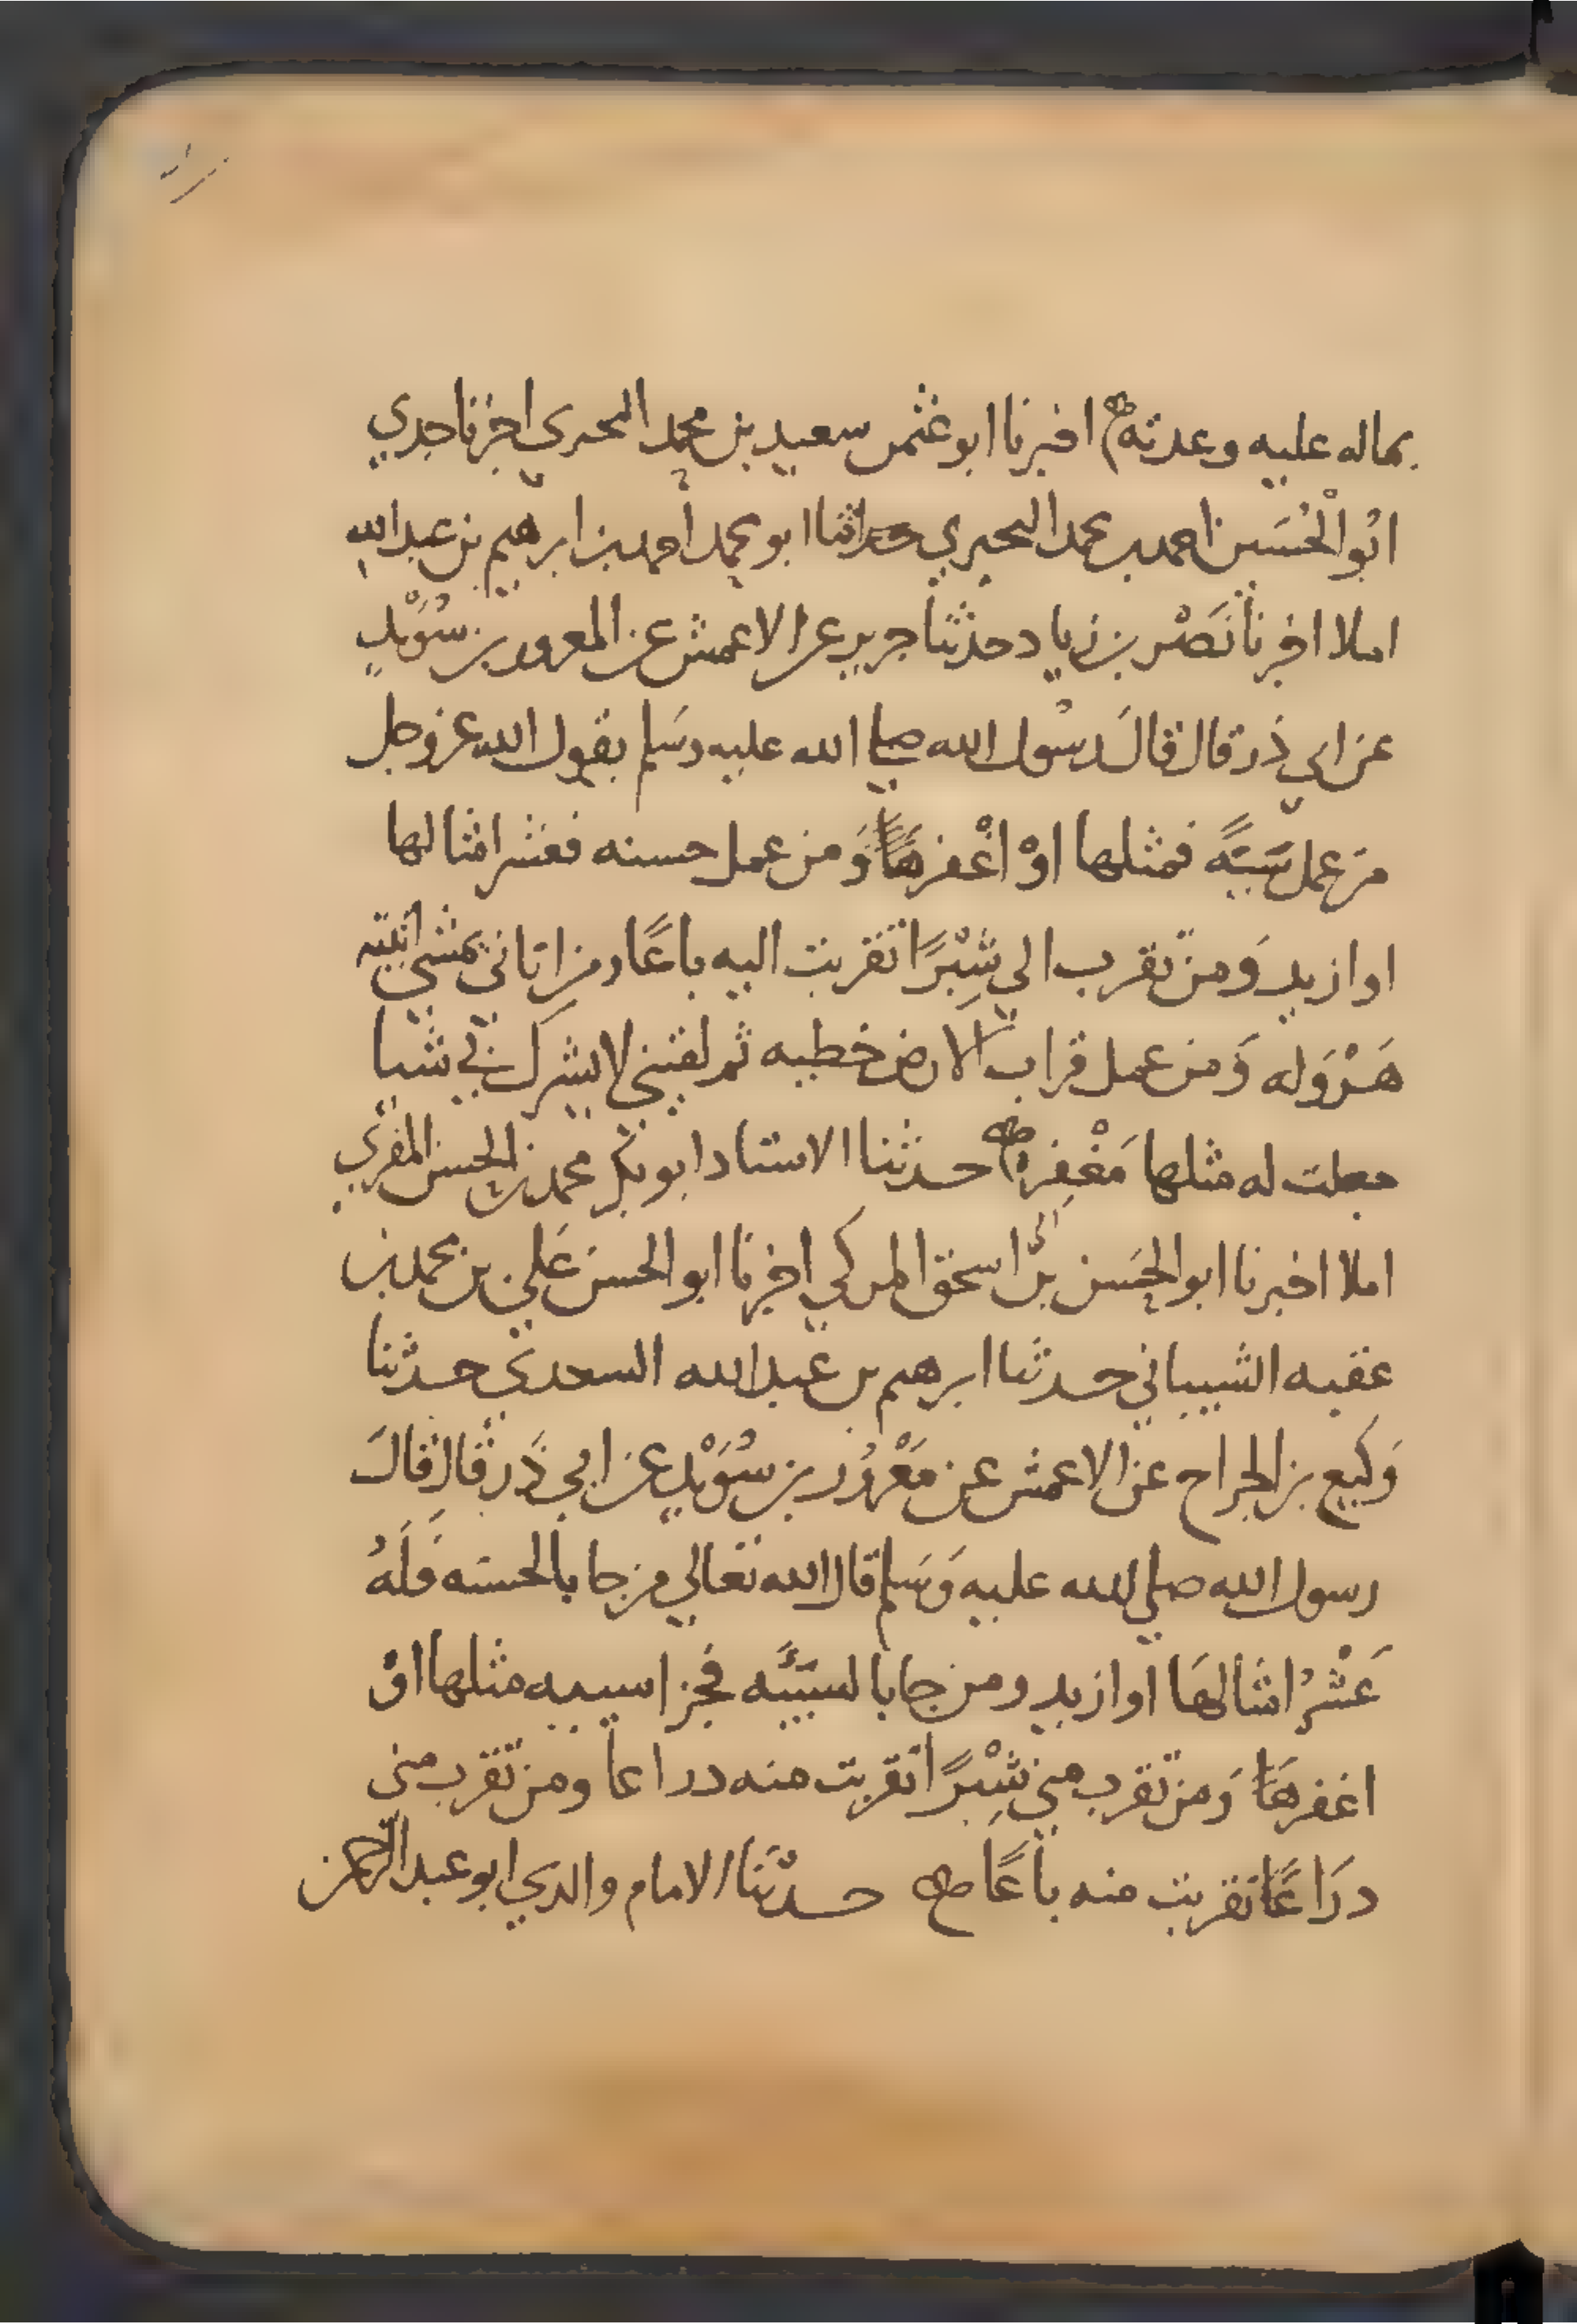 بماله عليه وعدته اخبرنا ابو عثمن سعيد بن محمد البحيري اخبرنا جدي
ابُو الْحُسَين احمد بن محمد البحيري حدثنا ابو محمد احمد بن ابرهيم بن عبد الله
املا اخبرنا نَصْر بن زياد حدثنا جرير عن الاعمش عن المعرور بن سُوَيْدٍ
عن ابي ذر قال قالَ رسُول الله صلي الله عليه وسَلم يقول الله عز وجل
من عمل سَيّئَةً فمثلها اوْ اغْفرهَا وَمن عمل حسنه فعشر امثالها
او ازيد وَمن تقرب الي شِبْرًا تقربت اليه باعًا ومن اتاني يمشي اتيته
هَرْوَله وَمن عمل قراب الارض خطيه ثم لقيني لا يشرك بي شيا
جعلت له مثلها مَغْفِره حدثنا الاستاد ابو بكر محمد بن الحسن المقري
املا اخبرنا ابو الحَسَن بن اسحق المزكي اخبرنا ابو الحسن عَلي بن محمد بن
عقبه الشيباني حدثنا ابرهيم بن عبد الله السعدي حدثنا
وَكيع بن الجراح عن الاعمش عن مَعْرُور بن سُوَيْدٍ عن ابي ذَر قال قالَ
رسول الله صلي الله عليه وَسَلم قال الله تعالي من جا بالحسنه فَلَهُ
عَشْرُ امثالهَا او ازيد ومن جا بالسَيّئَه فجزا سييه مثلها اوْ
اغفرهَا وَمن تقرب مني شِبْرًا تقربت منه دراعا ومن تقرب مني
درَاعًا تقربت منه باعًا حدثَنا الامام والدي ابو عبد الرحمن